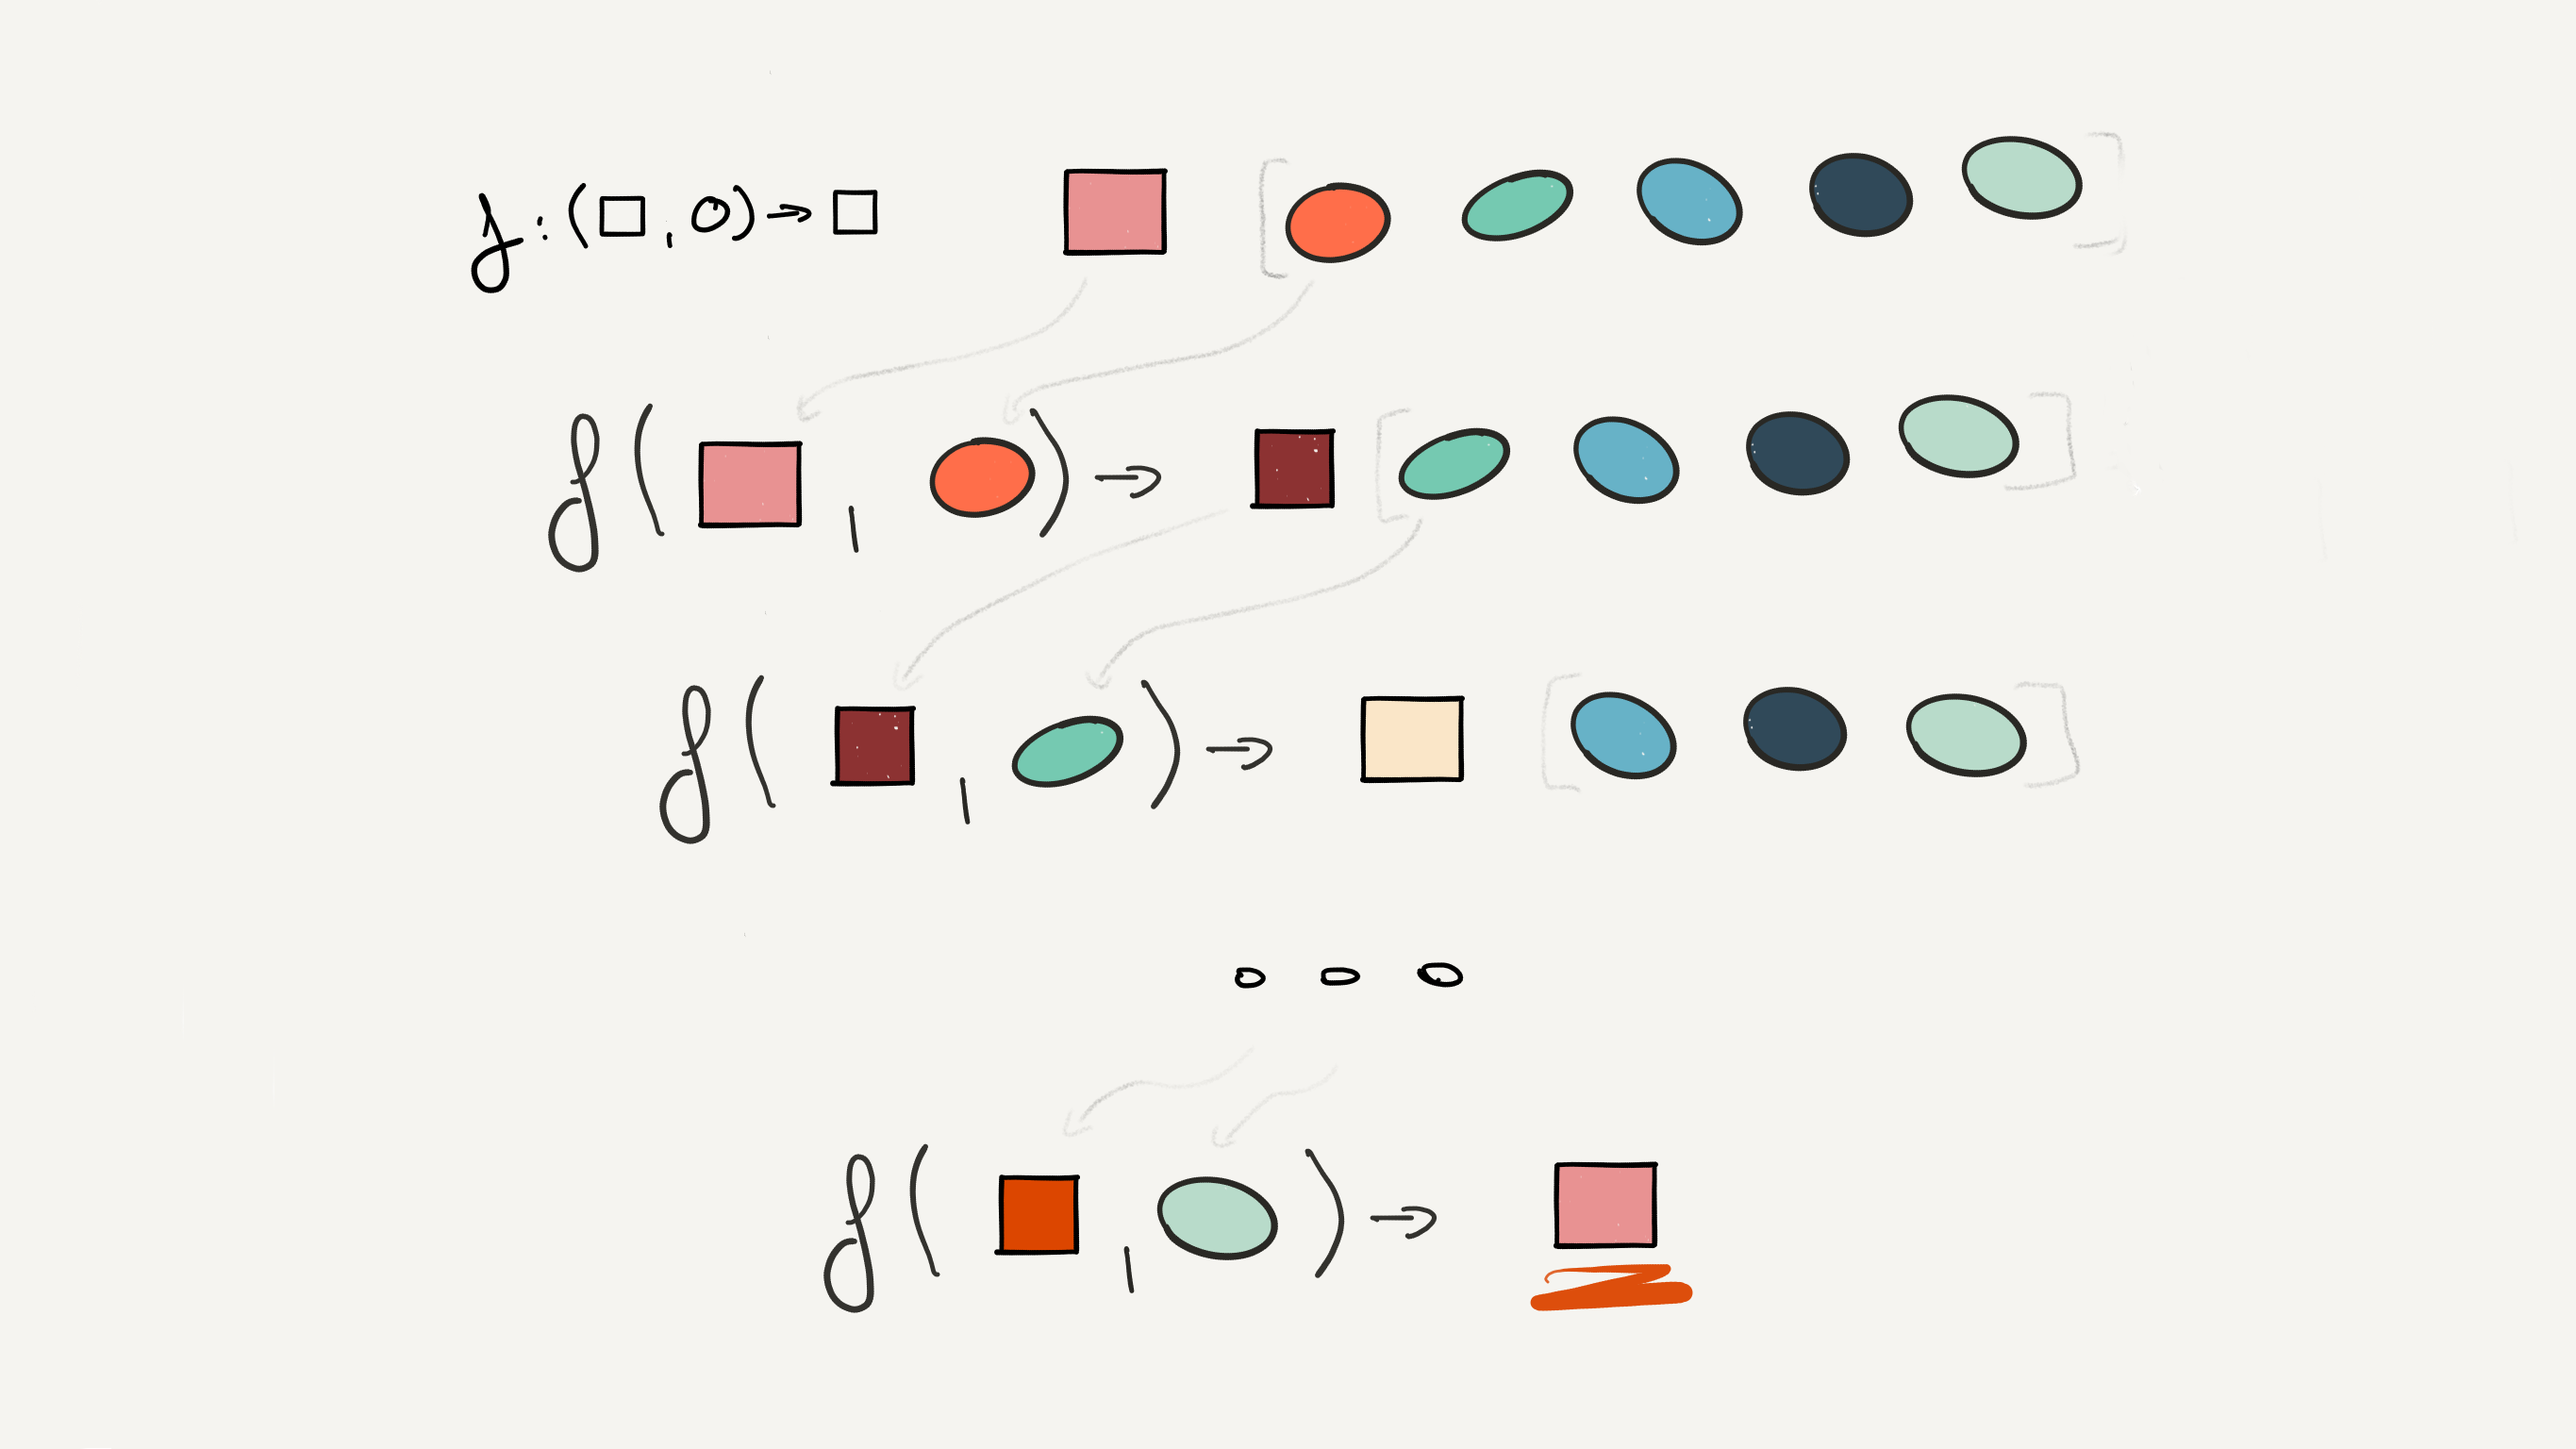 f : (□, O) → □
f( , ) →
f( , ) →
f( , ) →